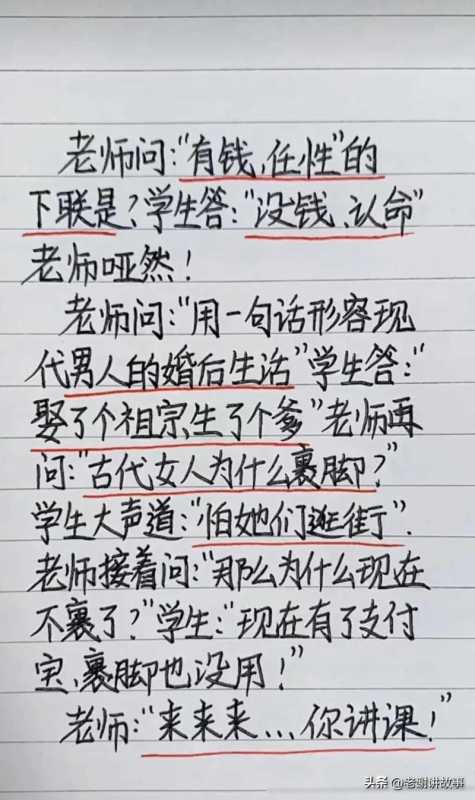 老师问:"有钱、任性"的
下联是?学生答:"没钱、认命"
老师哑然!
老师问:"用一句话形容现
代男人的婚后生活"学生答:"
娶了个祖宗,生了个爹"老师再
问:"古代女人为什么裹脚?"
学生大声道:"怕她们逛街".
老师接着问:"那么为什么现在
不裹了?"学生:"现在有了支付
宝、裹脚也没用!"
老师:"来来来...你讲课!"
头条 @老谢讲故事